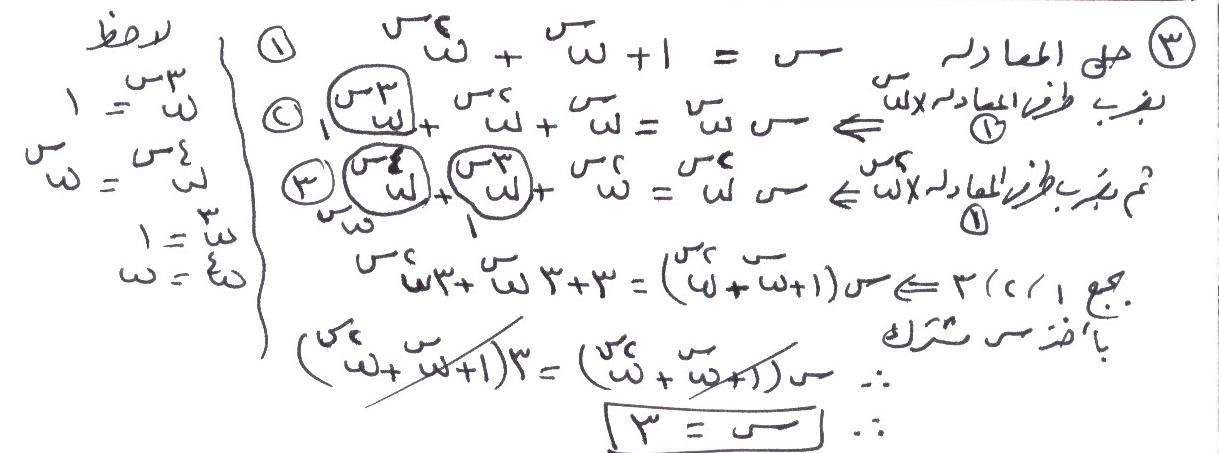 ٣ حل المعادله س = ١ + ω^س + ω^٢س ①
بضرب طرفى المعادله ① × ω^س ⇐ س ω^س = ω^س + ω^٢س + ω^٣س ② ١
ثم بضرب طرفى المعادله ① × ω^٢س ⇐ س ω^٢س = ω^٢س + ω^٣س + ω^٤س ③ ١ ω^س
بجمع ١ / ٢ / ٣ ⇐ س (١ + ω^س + ω^٢س) = ٣ + ٣ ω^س + ٣ ω^٢س
بأخذ س مشترك
∴ س (١ + ω^س + ω^٢س) = ٣ (١ + ω^س + ω^٢س)
∴ س = ٣
لاحظ
ω^٣س = ١
ω^٤س = ω^س
ω^٣ = ١
ω^٤ = ω